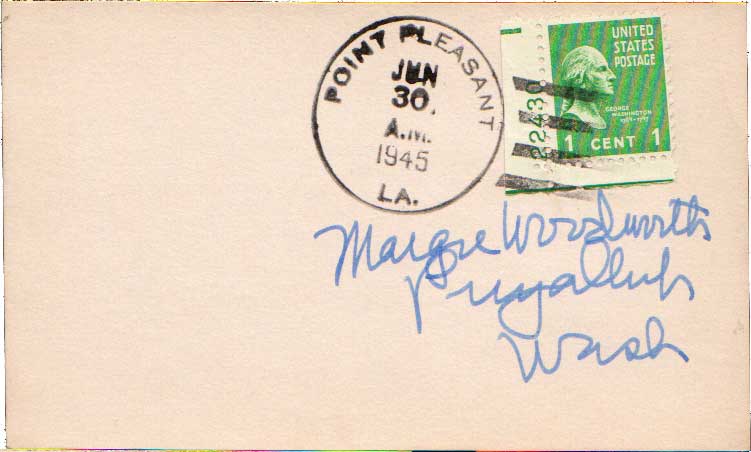 POINT PLEASANT
JUN
30.
A.M.
1945
LA.
22430
UNITED
STATES
POSTAGE
GEORGE
WASHINGTON
1 CENT 1
Margie Woodworth
Puyallup
Wash